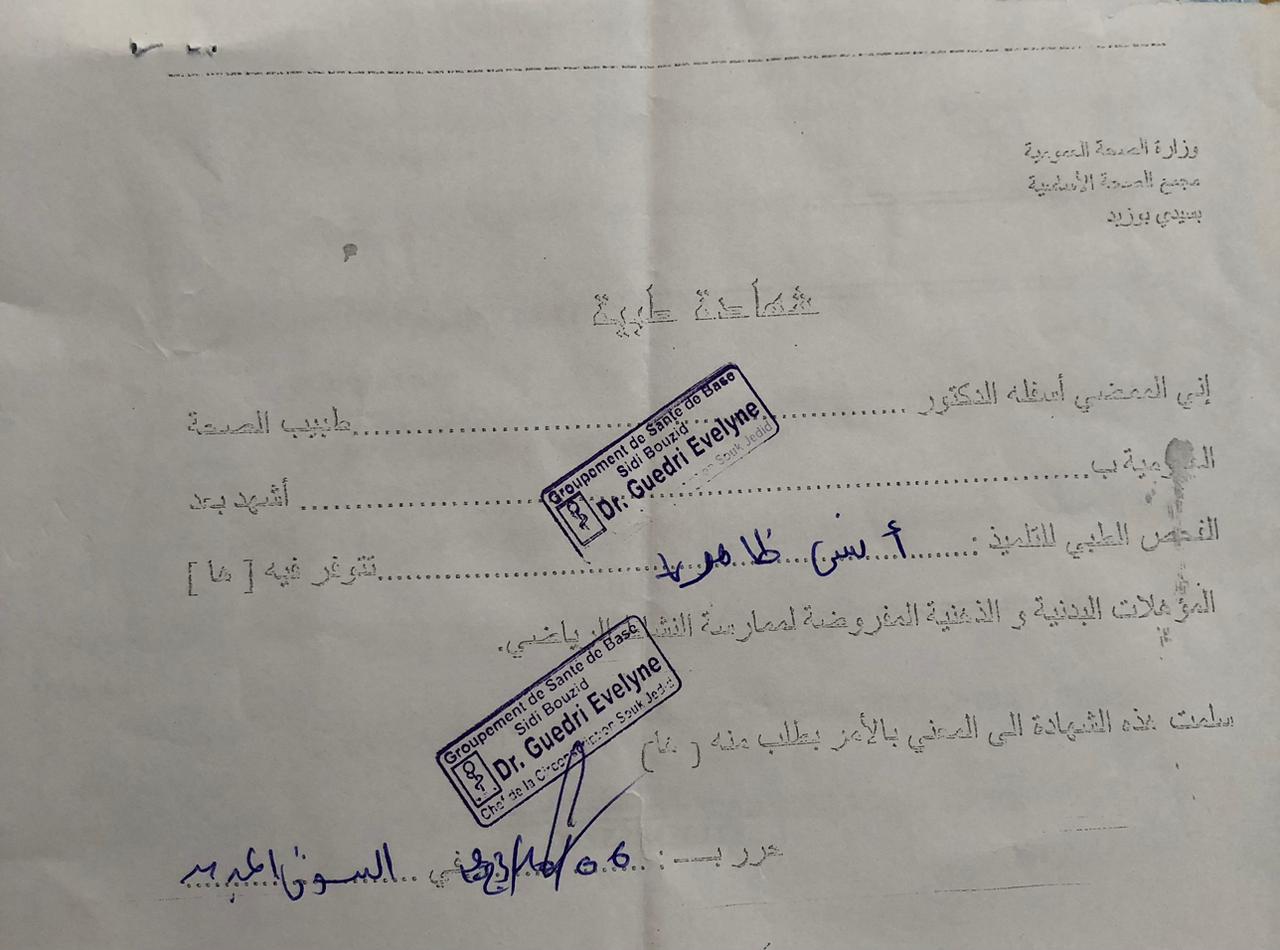 وزارة الصحة العمومية
مجمع الصحة الأساسية
بسيدي بوزيد
شهادة طبية
إني الممضي أسفله الدكتور ........ طبيب الصحة
Groupement de Santé de Base
Sidi Bouzid
Dr. Guedri Evelyne
Souk Jedid
العمومية ب ........ أشهد بعد
الفحص الطبي للتلميذ : أنس ........ تتوفر فيه [ ها ]
المؤهلات البدنية و الذهنية المفروضة لممارسة النشاط الرياضي.
Groupement de Santé de Base
Sidi Bouzid
Dr. Guedri Evelyne
Chef de la Circonscription Souk Jedid
سلمت هذه الشهادة الى المعني بالأمر بطلب منه ( ها )
حرر بـ : ........ في السوق الجديد